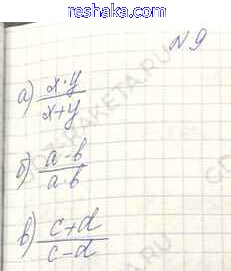 reshaka.com
№9
а) x·y/x+y
б) a-b/a·b
в) c+d/c-d